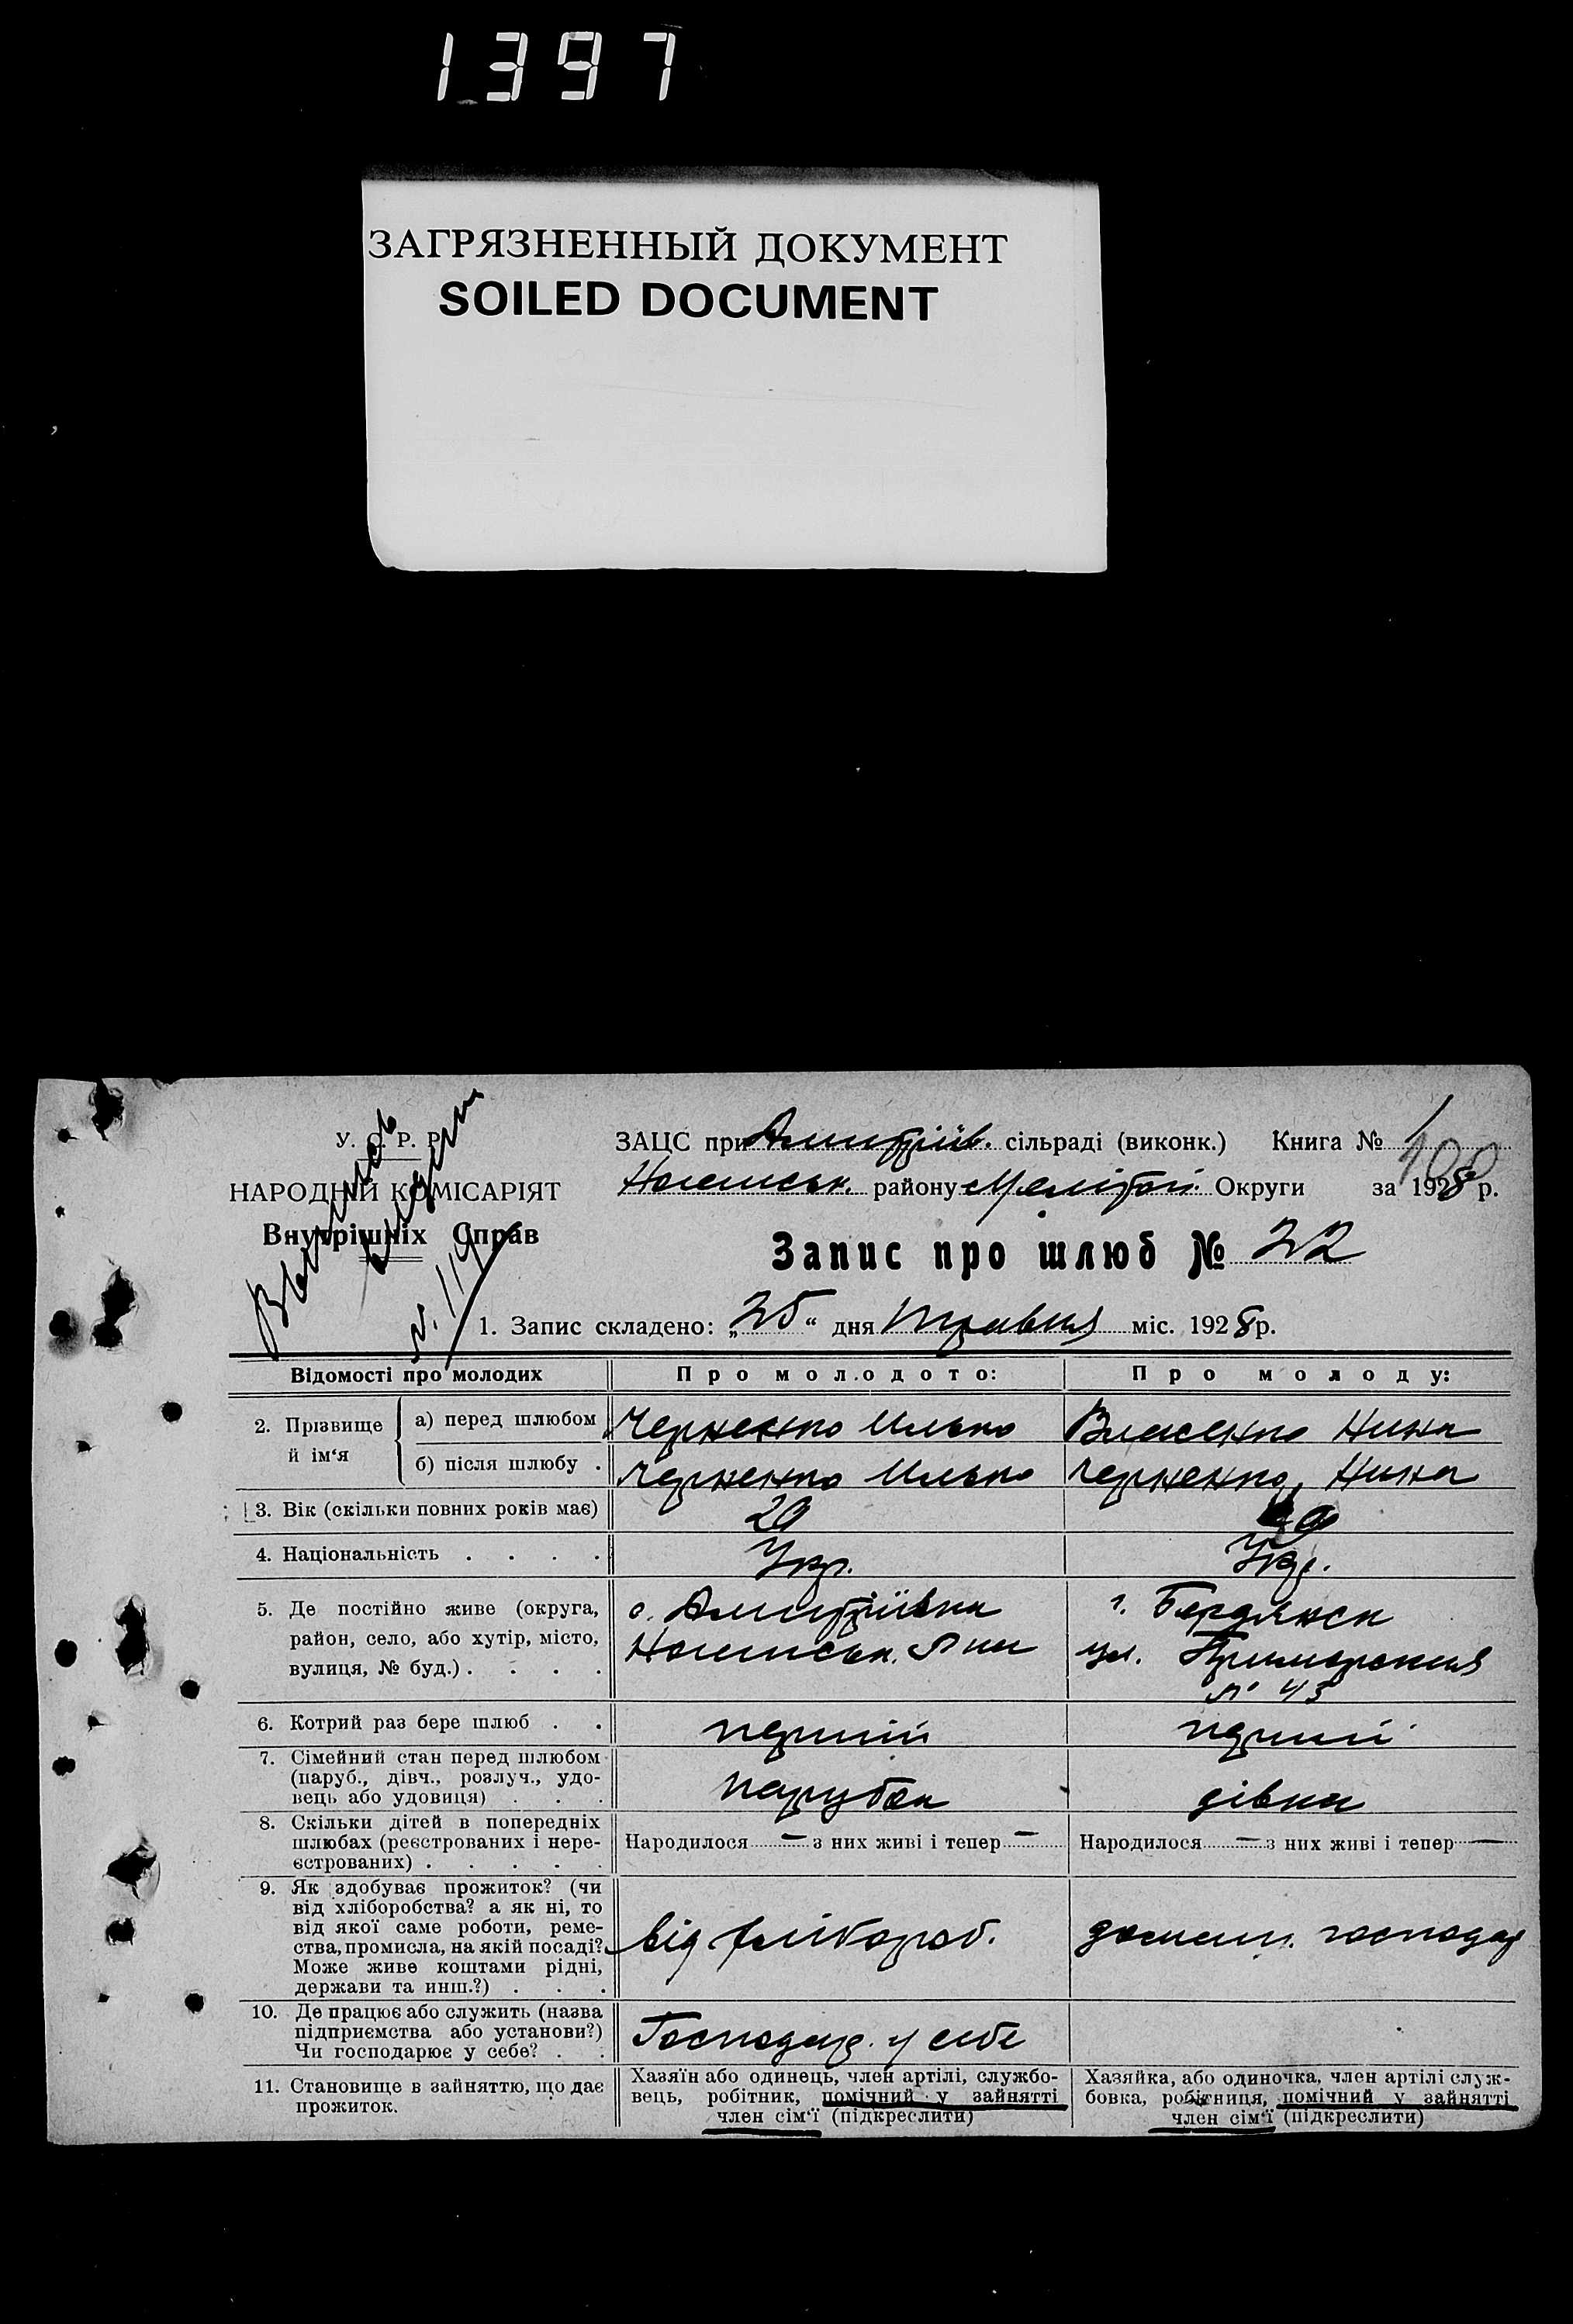 1397
ЗАГРЯЗНЕННЫЙ ДОКУМЕНТ
SOILED DOCUMENT
У. С. Р. Р.
НАРОДНІЙ КОМІСАРІЯТ
Внутрішніх Справ
N. 119
ЗАЦС при Дмитріїв. сільраді (виконк.) Книга № 1
Ногайськ. району Мелітоп. Округи за 1928 р.
Запис про шлюб № 22
1. Запис складено: „25“ дня травня міс. 1928 р.
Відомості про молодих Про молодого: Про молоду:
2. Прізвище й ім‘я
а) перед шлюбом Черненко Илько Власенко Нина
б) після шлюбу . Черненко Илько Черненко Нина
3. Вік (скільки повних років має) 20
4. Національність . . . . Укр. Укр.
5. Де постійно живе (округа,
район, село, або хутір, місто,
вулиця, № буд.) . . . .
с. Дмитріївка
Ногайськ. р-ну
г. Бердянск
ул. Приморская
№ 43
6. Котрий раз бере шлюб . . перший перший
7. Сімейний стан перед шлюбом
(паруб., дівч., розлуч., удо-
вець або удовиця) . . .
парубок дівка
8. Скільки дітей в попередніх
шлюбах (реєстрованих і нере-
єстрованих) . . . . .
Народилося — з них живі і тепер — Народилося — з них живі і тепер —
9. Як здобуває прожиток? (чи
від хліборобства? а як ні, то
від якої саме роботи, реме-
ства, промисла, на якій посаді?
Може живе коштами рідні,
держави та инш.?) . . .
від хлібороб. домашн. господар
10. Де працює або служить (назва
підприємства або установи?)
Чи господарює у себе? . .
Господар. у себе
11. Становище в зайняттю, що дає
прожиток.
Хазяїн або одинець, член артілі, службо-
вець, робітник, помічний у зайнятті
член сім‘ї (підкреслити)
Хазяйка, або одиночка, член артілі служ-
бовка, робітниця, помічний у зайнятті
член сім‘ї (підкреслити)